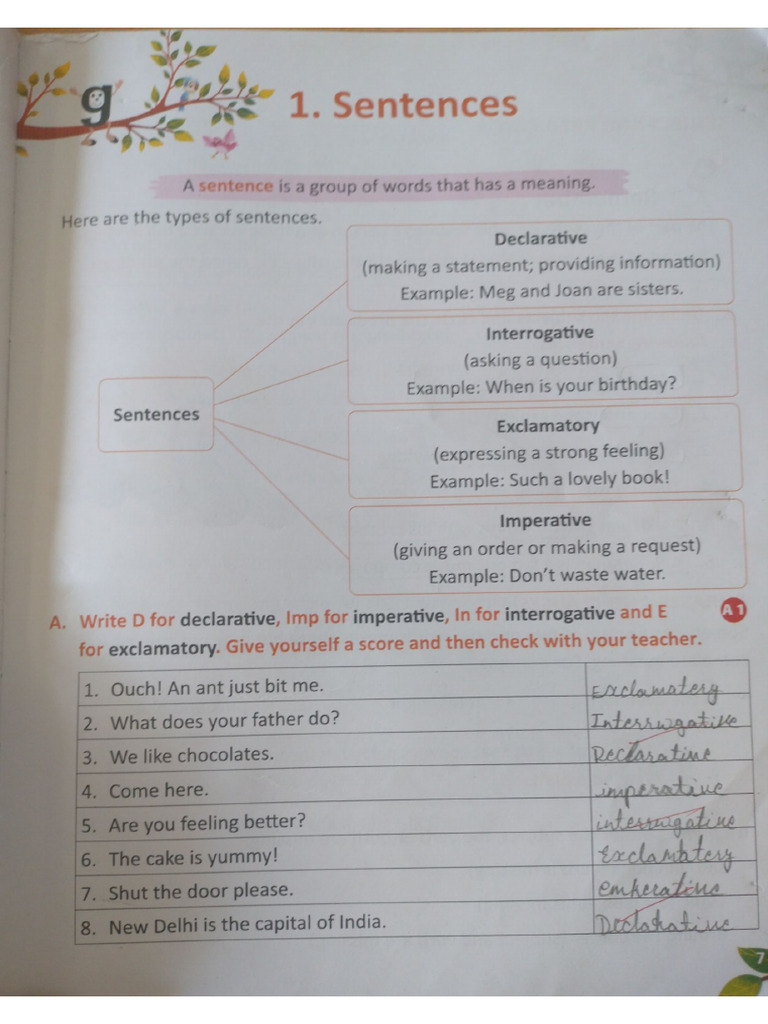 g
1. Sentences
A sentence is a group of words that has a meaning.
Here are the types of sentences.
Declarative
(making a statement; providing information)
Example: Meg and Joan are sisters.
Interrogative
(asking a question)
Example: When is your birthday?
Sentences
Exclamatory
(expressing a strong feeling)
Example: Such a lovely book!
Imperative
(giving an order or making a request)
Example: Don't waste water.
A. Write D for declarative, Imp for imperative, In for interrogative and E A1
for exclamatory. Give yourself a score and then check with your teacher.
1. Ouch! An ant just bit me. Exclamatery
2. What does your father do? Interrugative
3. We like chocolates. Declarative
4. Come here. imperative
5. Are you feeling better? interrugative
6. The cake is yummy! Exclamatery
7. Shut the door please.
8. New Delhi is the capital of India. Declarative
7